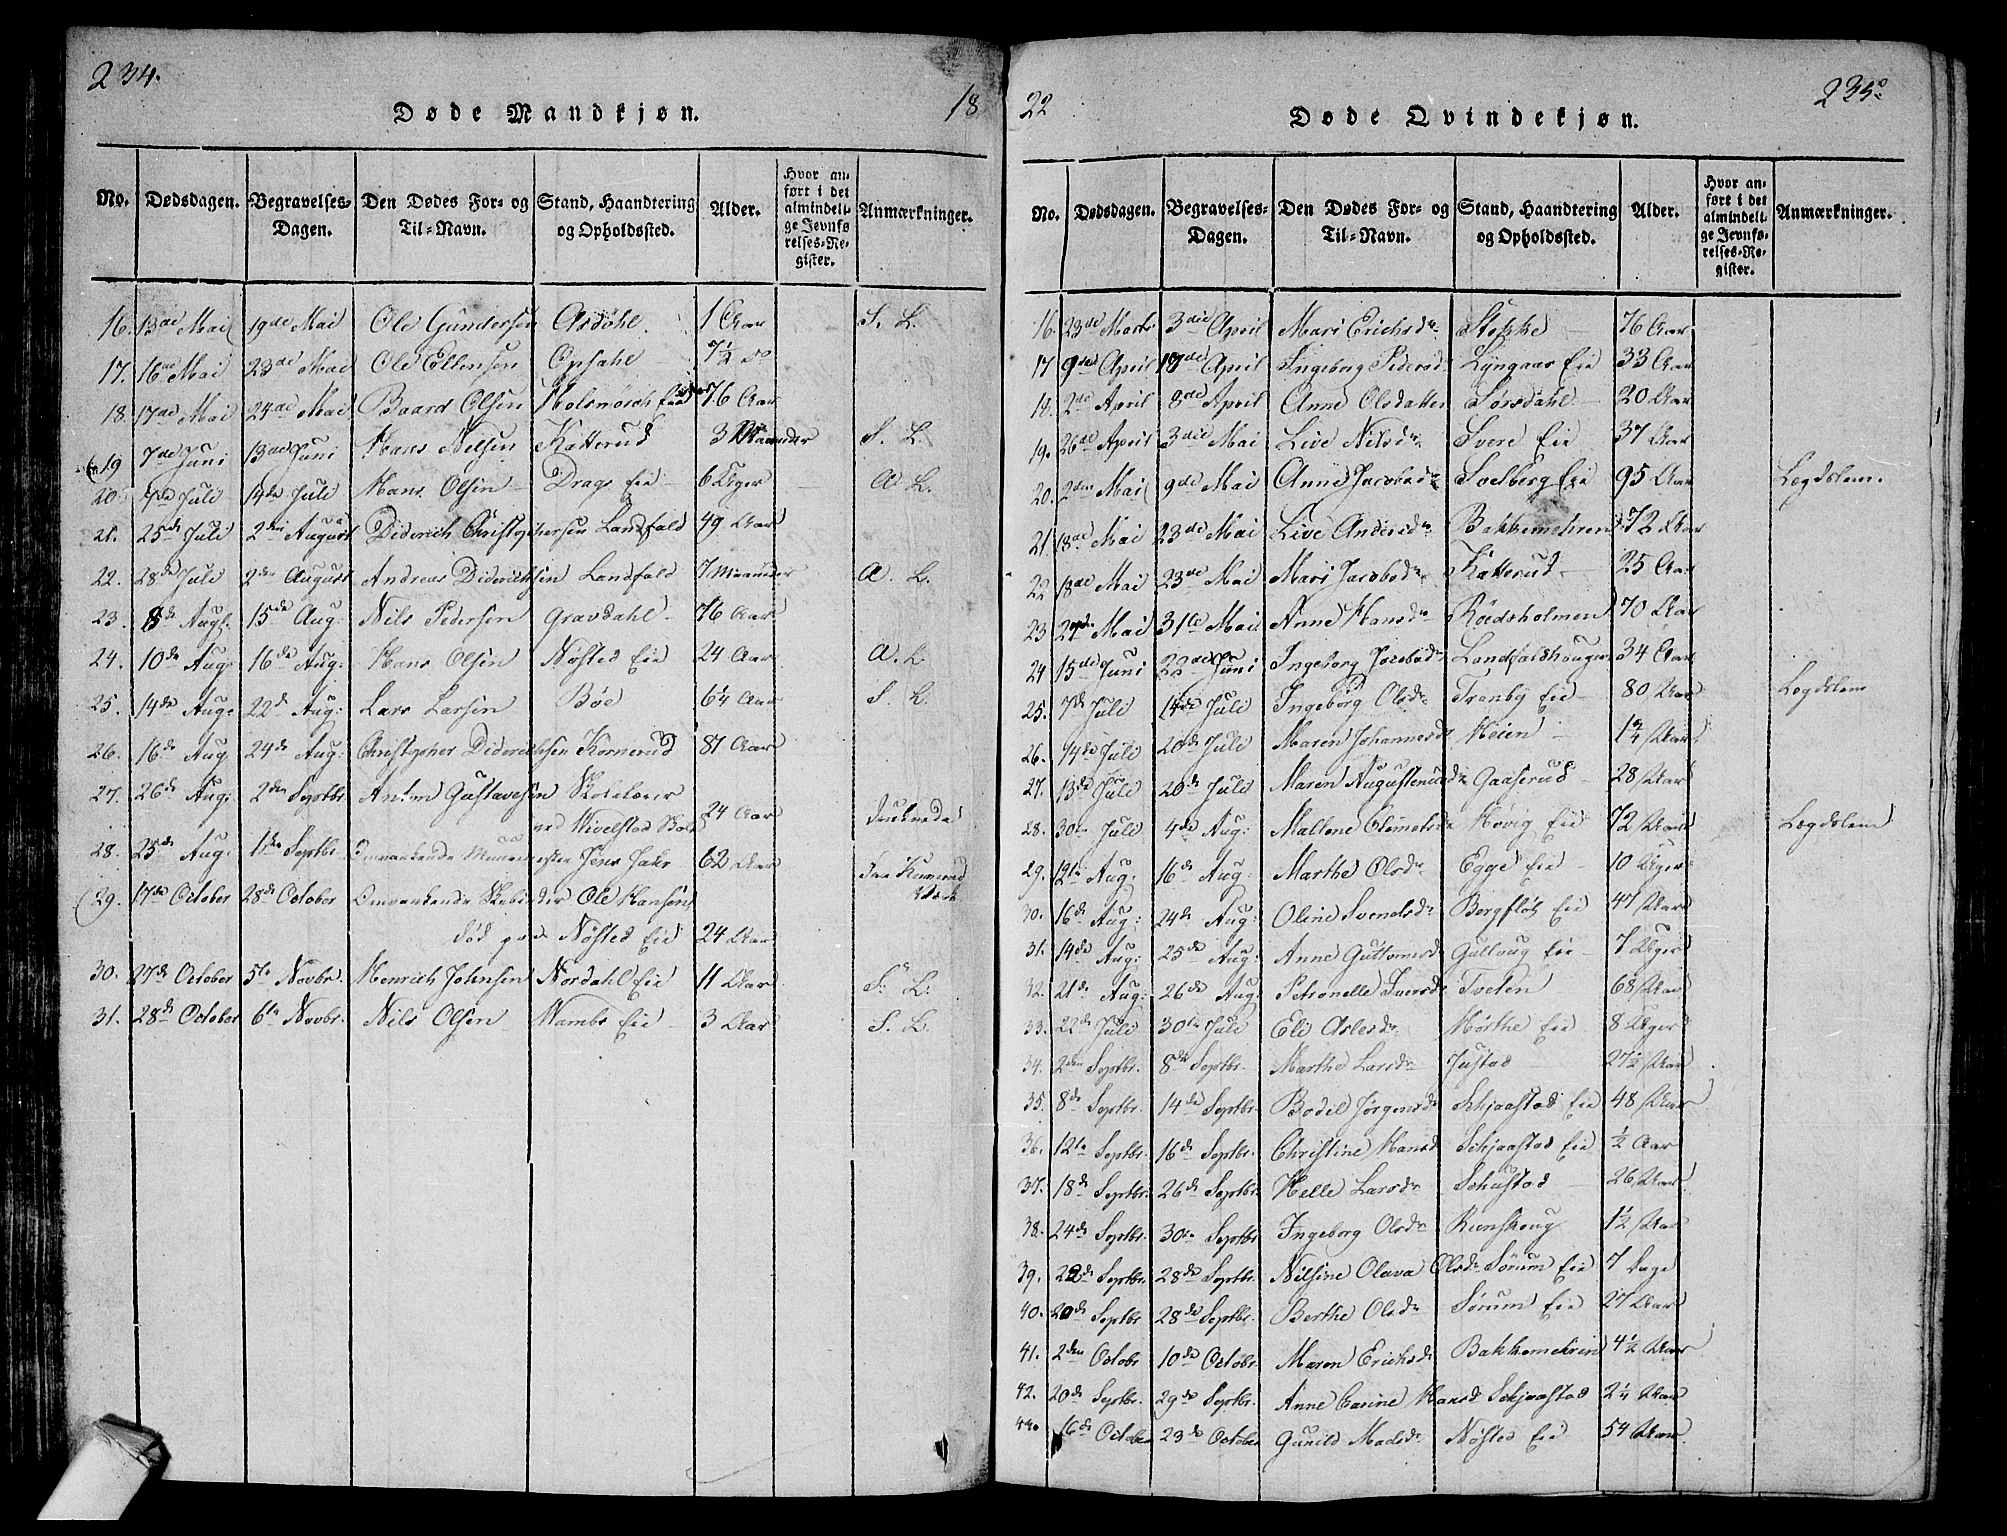 234.
Døde Mandkjøn.
18
No. Dødsdagen. Begravelses-Dagen. Den Dødes For- og Til-Navn. Stand, Haandtering og Opholdssted. Alder. Hvor anført i det almindelige Jevnførelses-Register. Anmærkninger.
16. 13de Mai 19de Mai Ole Gundersen Asdøhl. 1 Aar S. L.
17. 16de Mai 23de Mai Ole Ellensen Opsahl 7½ do
18. 17de Mai 24de Mai Baard Olsen Eie 76 Aar
19 7de Juni 13de Juni Hans Nilsen Katterud 3 Maaneder S. L.
20 7de Juli 14de Juli Hans Olsen Drags Eie 6 Uger A. L.
21. 25de Juli 2den August Diderich Christophersen Landfald 49 Aar
22. 28de Juli 2den August Andreas Diderichsen Landfald 7 Maaneder A. L.
23. 8de Aug: 15de Aug: Nils Pedersen Gravdahl 76 Aar
24. 10de Aug: 16de Aug: Hans Olsen Nøsted Eie 24 Aar A. L.
25. 14de Aug: 22de Aug: Lars Larsen Bøe 64 Aar S. L.
26. 16de Aug 24de Aug: Christopher Diderichsen Kornerud 81 Aar
27. 26de Aug: 2den Septbr. Anton Gustavesen Skolelærer
ved Hivelstad Skole 24 Aar Druknede
28. 25de Aug: 1ste Septbr. Omvankende Jens 62 Aar
29. 17de October 28de October Omvankende Ole Hansen
død paa Nøsted Eie 24 Aar
30. 27de October 5te Novbr. Henrich Johnsen Nordahl Eie 11 Aar S. L.
31. 28de October 6te Novbr. Nils Olsen Wambs Eie 3 Aar S. L.
22
235.
Døde Qvindekjøn.
No. Dødsdagen. Begravelses-Dagen. Den Dødes For- og Til-Navn. Stand, Haandtering og Opholdssted. Alder. Hvor anført i det almindelige Jevnførelses-Register. Anmærkninger.
16. 23de Marts 3die April Mari Erichsdr 76 Aar
17 9de April 17de April Ingeborg Pedersdr Lyngaas Eie 33 Aar
18. 2de April 8de April Anne Olsdatter Sørsdahl 20 Aar
19. 26de April 3die Mai Live Nilsdr Svere Eie 37 Aar
20. 2den Mai 9de Mai Anne Jacobsdr Solberg Eie 95 Aar Lægdslem.
21 18de Mai 23de Mai Live Andersdr Bakkemehren 72 Aar
22 18de Mai 23de Mai Mari Jacobsdr Katterud 25 Aar
23 24de Mai 31te Mai Anne Hansdr Rødsholmen 70 Aar
24 15de Juni 22de Juni Ingeborg Jacobsdr Landfaldhougen 34 Aar
25. 7de Juli 14de Juli Ingeborg Olsdr Tranby Eie 80 Aar Lægdslem
26. 14de Juli 20de Juli Maren Johannesdr Heien 1¾ Aar
27. 13de Juli 20de Juli Maren Augustinusdr Gaaserud 28 Aar
28. 30te Juli 4de Aug: Mallene Clemetsdr Høvig Eie 72 Aar Lægdslem
29. 12te Aug: 16de Aug: Marthe Olsdr Egge Eie 10 Uger
30. 16de Aug: 24de Aug: Oline Svendsdr Bergfløt Eie 47 Aar
31. 14de Aug: 25de Aug: Anne Guttormsdr Gullaug Eie 7 Uger
32. 21de Aug: 26de Aug: Petronelle Iversdr Tveten 68 Aar
33. 22de Juli 30te Juli Eli Aslesdr Hørthe Eie 8 Uger
34. 2den Septbr. 8de Septbr. Marthe Larsdr Justad 27½ Aar
35. 8de Septbr. 14de Septbr. Bodil Jørgensdr Schjaastad Eie 48 Aar
36. 12te Septbr. 16de Septbr. Christine Hansd Schjaastad Eie ½ Aar
37. 18de Septbr. 26de Septbr. Helle Larsdr Schustad 26 Aar
38. 24de Septbr. 30te Septbr Ingeborg Olsdr Renskoug 1½ Aar
39. 22de Septbr. 28de Septbr. Nilsine Olava Olsdr Sørum Eie 7 Dage
40. 20de Septbr 28de Septbr. Berthe Olsdr Sørum Eie 27 Aar
41. 2den Octobr 10de Octobr Maren Erichsdr Bakkemehren 4½ Aar
42. 20de Septbr. 29de Septbr. Anne Carine Hansd: Schjaastad 2¼ Aar
43. 16de October 23de October Gunild Madsdr Nøsted Eie 54 Aar